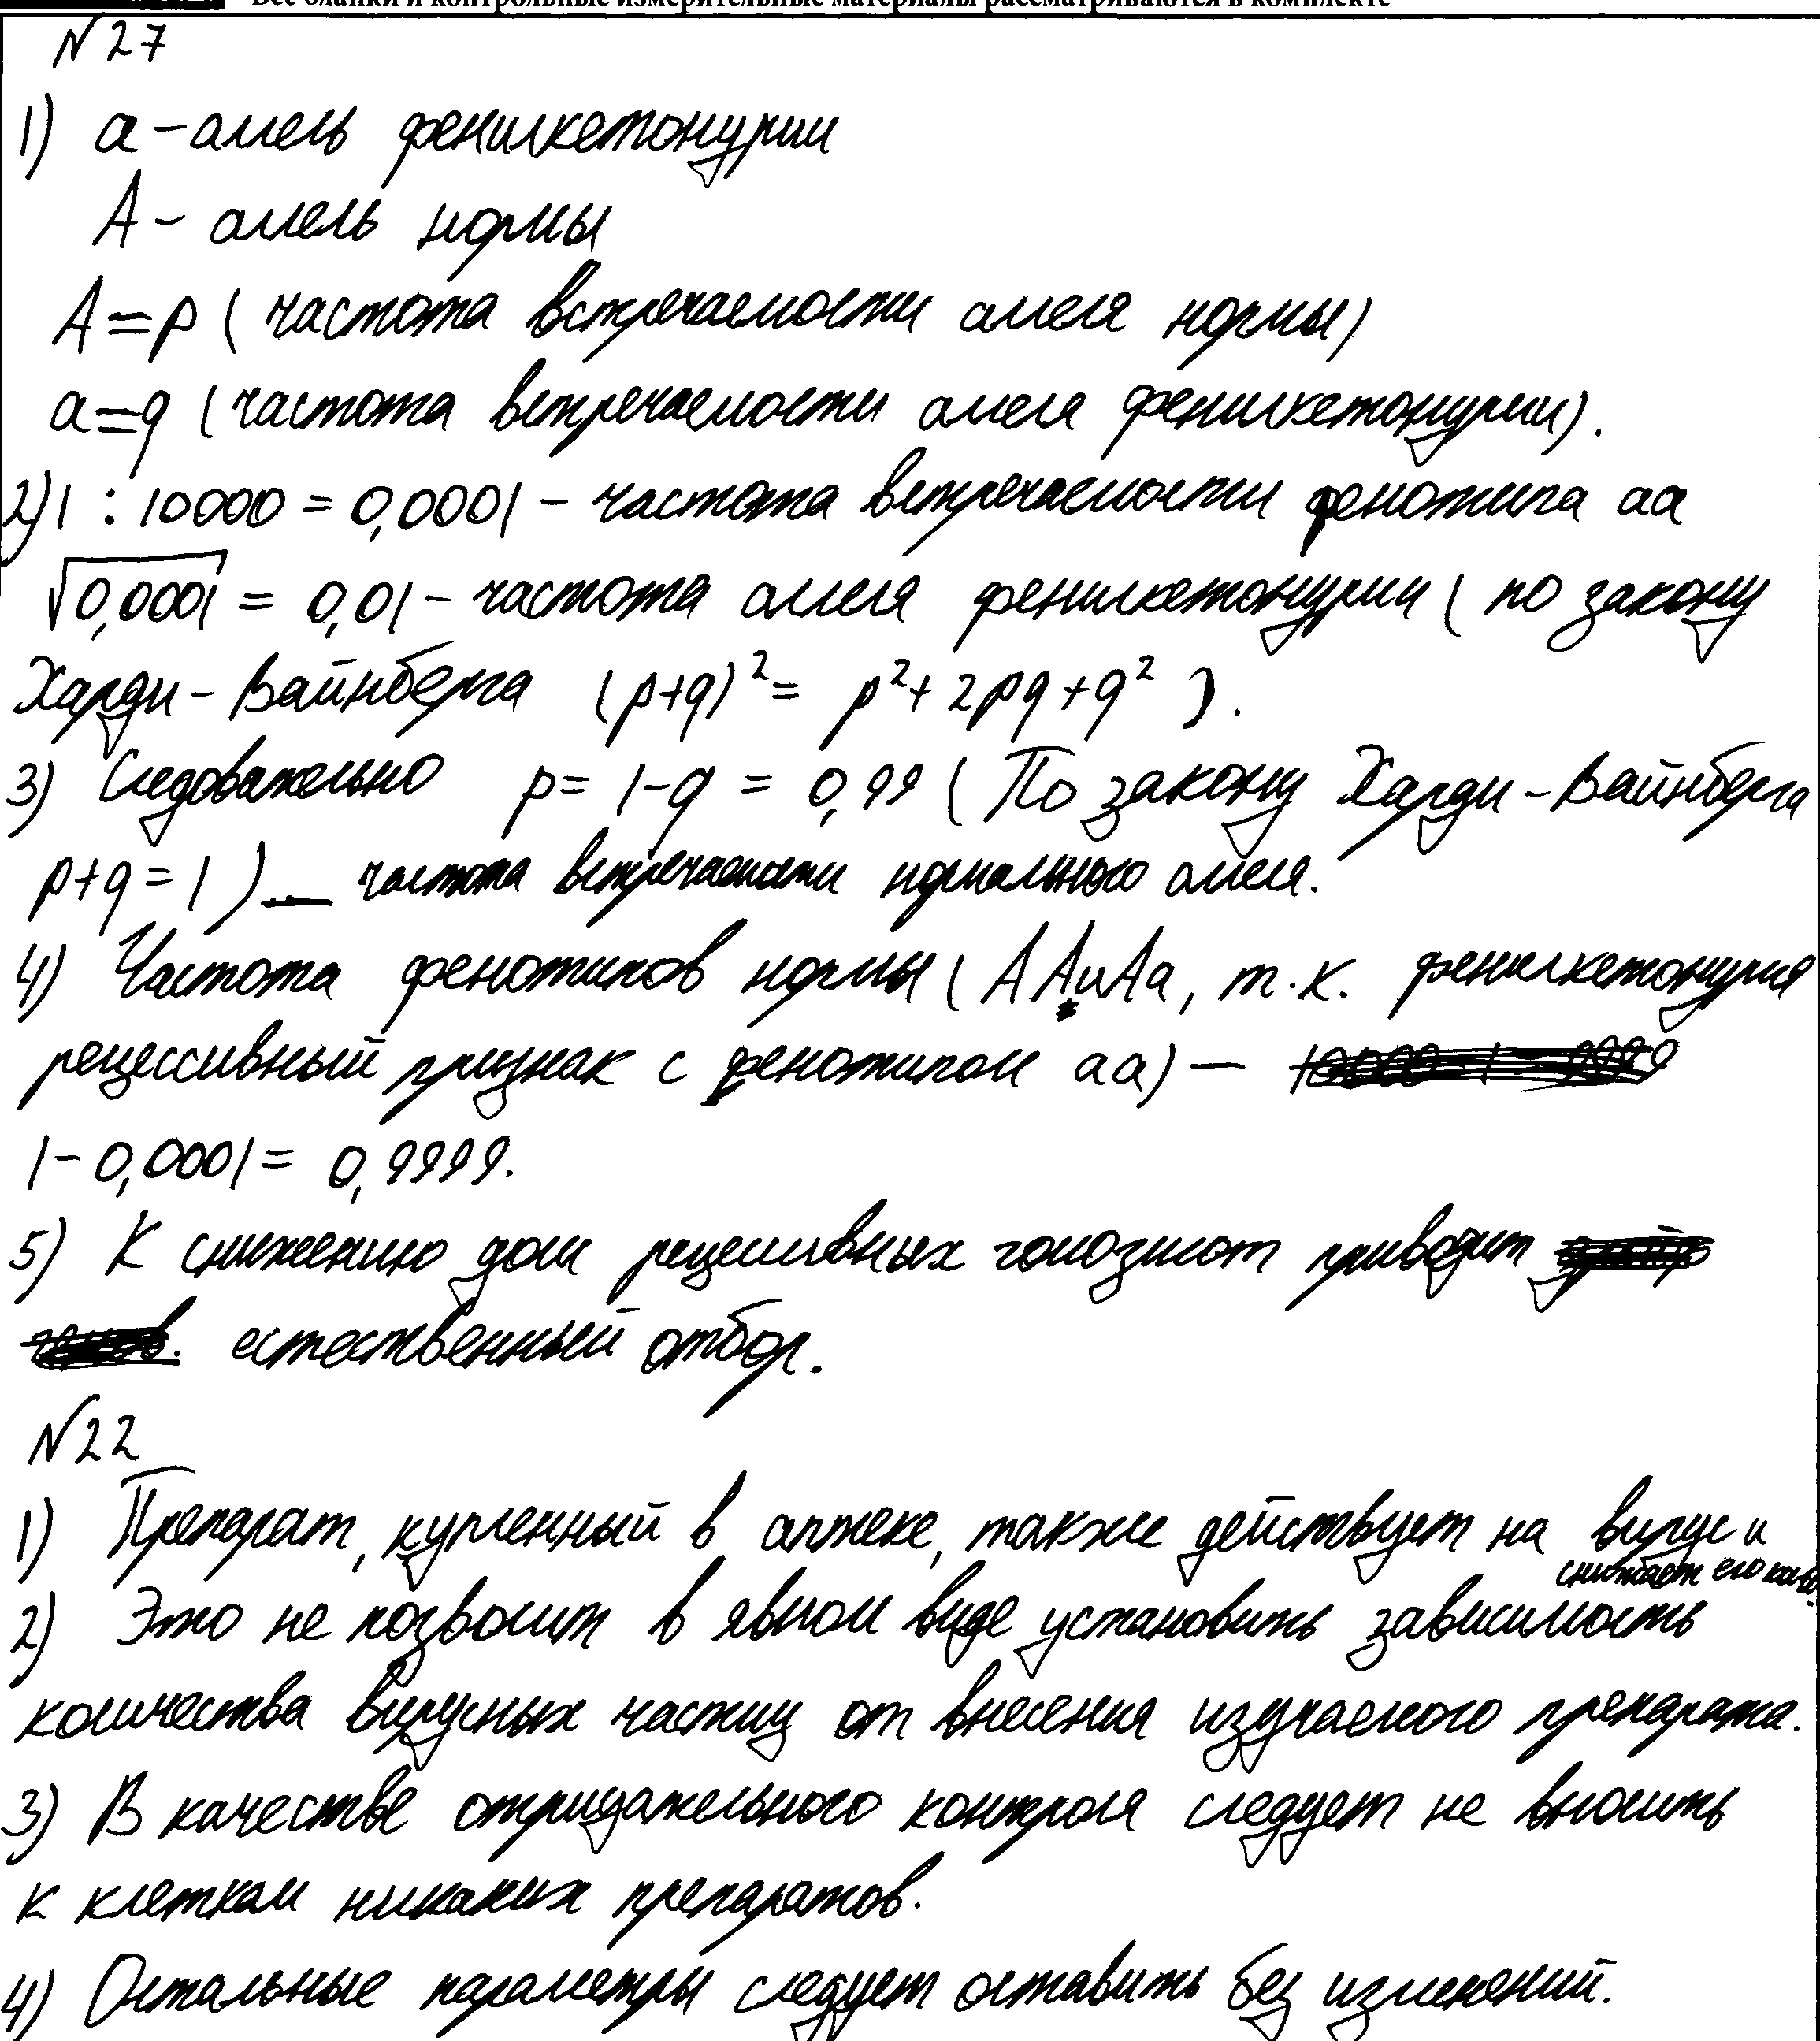 Все бланки и контрольные измерительные материалы рассматриваются в комплекте
№27
1) a – аллель фенилкетонурии
A – аллель нормы
A = p ( частота встречаемости аллеля нормы)
a = q ( частота встречаемости аллеля фенилкетонурии).
2) 1 : 10000 = 0,0001 – частота встречаемости фенотипа aa
√0,0001 = 0,01 – частота аллеля фенилкетонурии ( по закону
Харди – Вайнберга (p+q)² = p² + 2pq + q² ).
3) Следовательно p = 1-q = 0,99 ( По закону Харди – Вайнберга
p+q = 1 ) — частота встречаемости нормального аллеля.
4) Частота фенотипов нормы ( AA и Aa, т.к. фенилкетонурия
рецессивный признак с фенотипом aa) —
1 – 0,0001 = 0,9999.
5) К снижению доли рецессивных гомозигот приводит
естественный отбор.
№22
1) Препарат, купленный в аптеке, также действует на вирус и
снижает его кол-во.
2) Это не позволит в явном виде установить зависимость
количества вирусных частиц от внесения изучаемого препарата.
3) В качестве отрицательного контроля следует не вносить
к клеткам никаких препаратов.
4) Остальные параметры следует оставить без изменений.